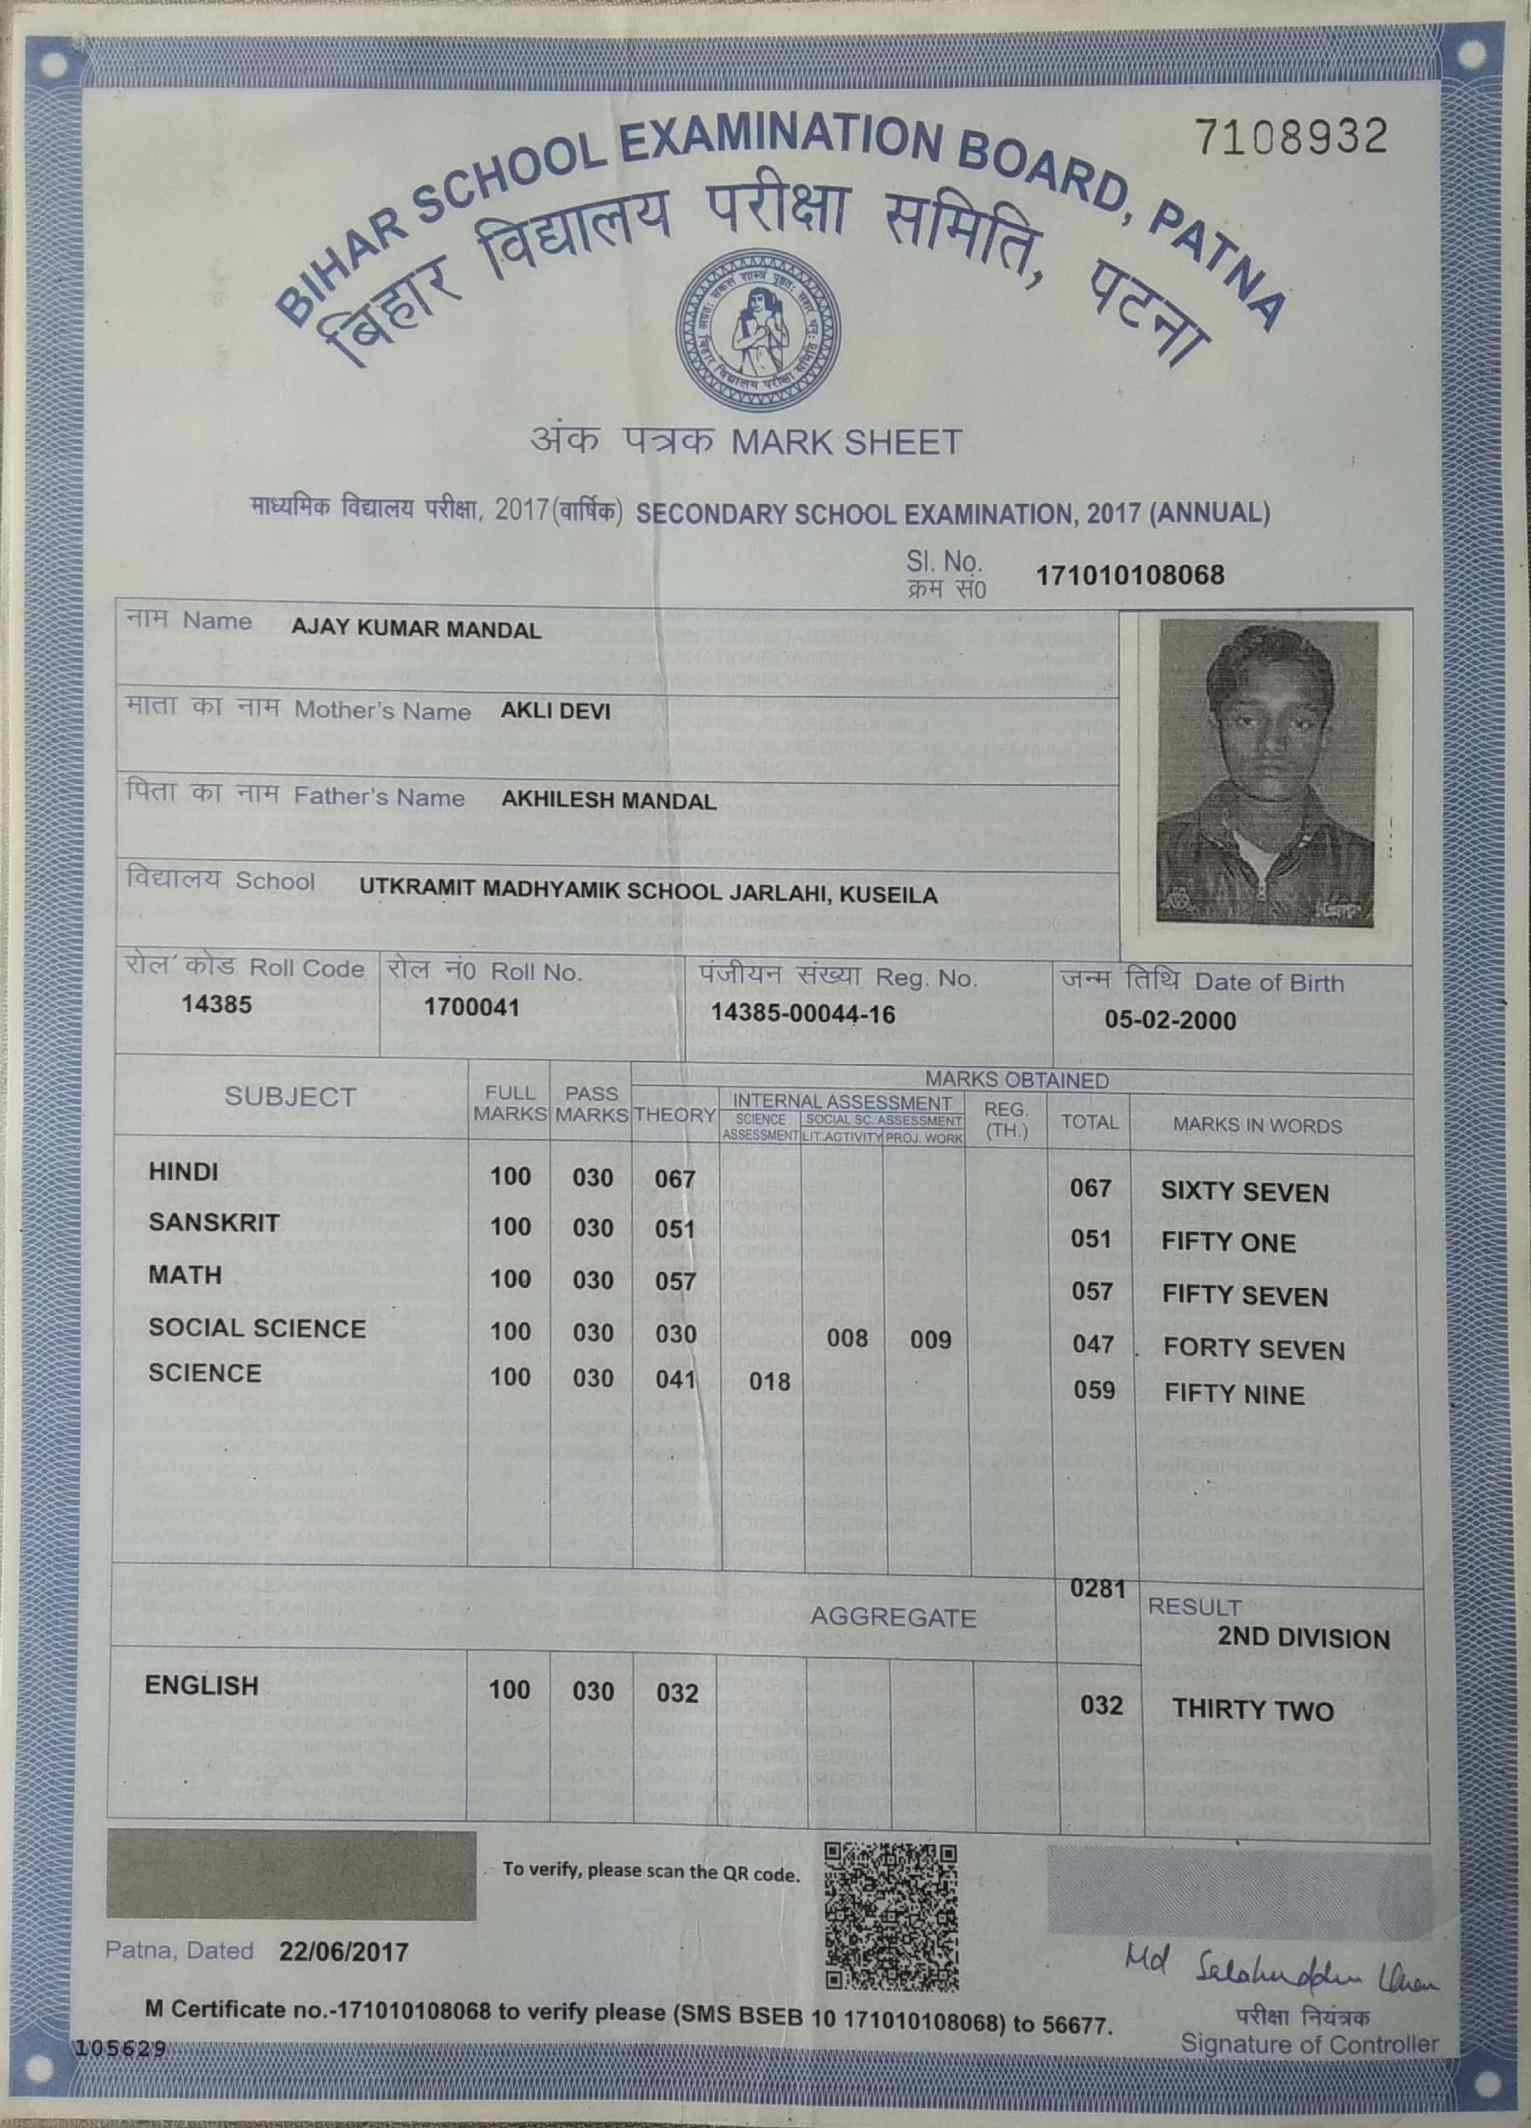 7108932
BIHAR SCHOOL EXAMINATION BOARD, PATNA
बिहार विद्यालय परीक्षा समिति, पटना
अंक पत्रक MARK SHEET
माध्यमिक विद्यालय परीक्षा, 2017(वार्षिक) SECONDARY SCHOOL EXAMINATION, 2017 (ANNUAL)
Sl. No.
क्रम सं0 171010108068
नाम Name AJAY KUMAR MANDAL
माता का नाम Mother's Name AKLI DEVI
पिता का नाम Father's Name AKHILESH MANDAL
विद्यालय School UTKRAMIT MADHYAMIK SCHOOL JARLAHI, KUSEILA
रोल कोड Roll Code रोल नं0 Roll No. पंजीयन संख्या Reg. No. जन्म तिथि Date of Birth
14385 1700041 14385-00044-16 05-02-2000
MARKS OBTAINED
SUBJECT FULL MARKS PASS MARKS THEORY INTERNAL ASSESSMENT REG. (TH.) TOTAL MARKS IN WORDS
SCIENCE ASSESSMENT SOCIAL SC. ASSESSMENT
LIT.ACTIVITY PROJ. WORK
HINDI 100 030 067 067 SIXTY SEVEN
SANSKRIT 100 030 051 051 FIFTY ONE
MATH 100 030 057 057 FIFTY SEVEN
SOCIAL SCIENCE 100 030 030 008 009 047 FORTY SEVEN
SCIENCE 100 030 041 018 059 FIFTY NINE
AGGREGATE 0281 RESULT
2ND DIVISION
ENGLISH 100 030 032 032 THIRTY TWO
To verify, please scan the QR code.
Patna, Dated 22/06/2017
Md Salahuddin Khan
M Certificate no.-171010108068 to verify please (SMS BSEB 10 171010108068) to 56677.
परीक्षा नियंत्रक
Signature of Controller
105629